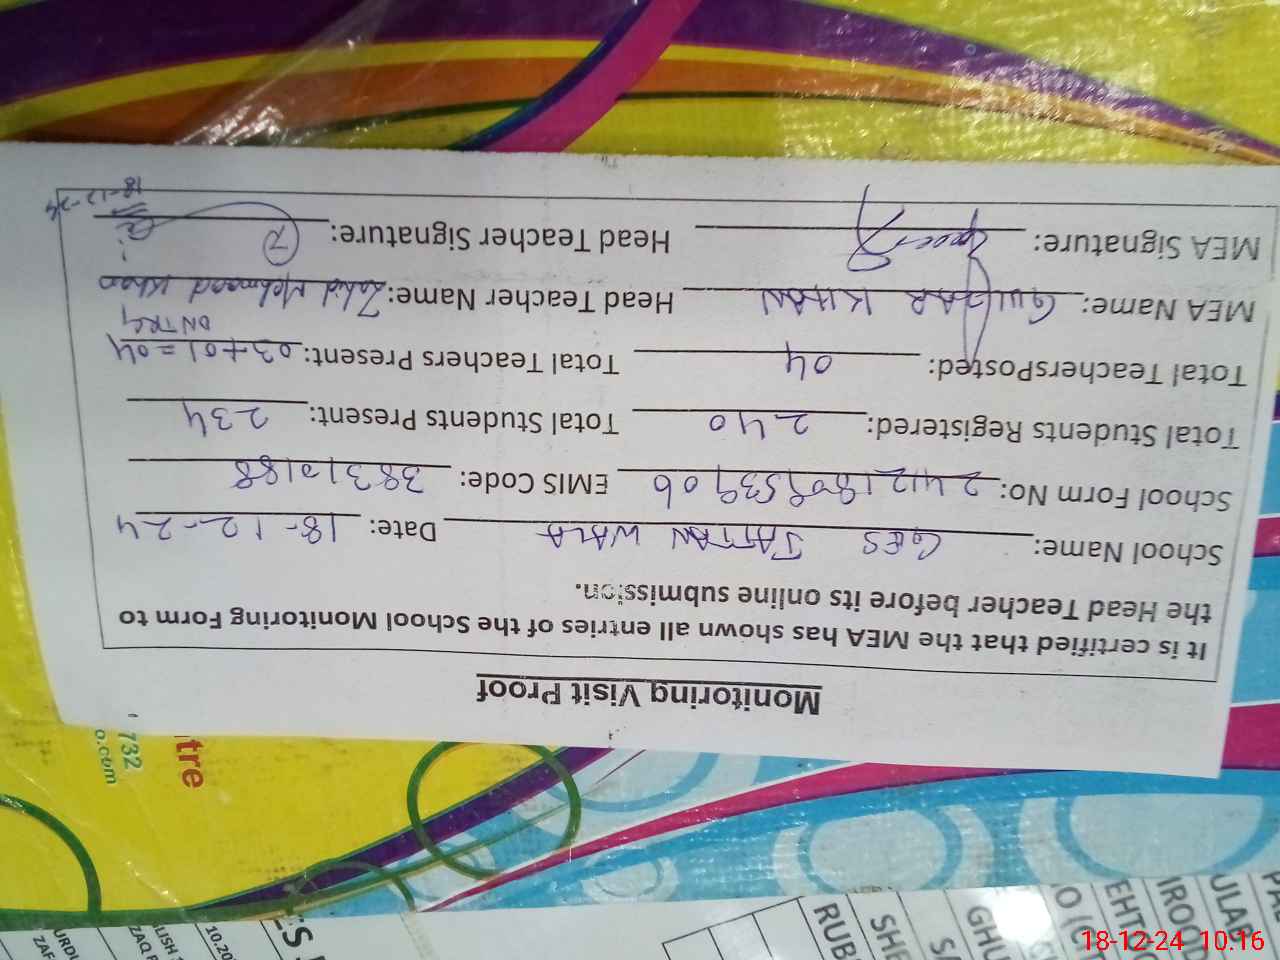 Monitoring Visit Proof
It is certified that the MEA has shown all entries of the School Monitoring Form to
the Head Teacher before its online submission.
School Name: GES JATTAN WALA Date: 18-12-24
School Form No: EMIS Code: 38310188
Total Students Registered: 240 Total Students Present: 234
Total TeachersPosted: 04 Total Teachers Present: 03+01=04
ON TRG
MEA Name: GULZAR KHAN Head Teacher Name: Zahid Mehmood Khan
MEA Signature: Head Teacher Signature:
18-12-24
ntre
732
o.com
RUB
SHE
GHU
EHT
IROOD
ULAB
10.20
URDU
ZAF
18-12-24 10:16